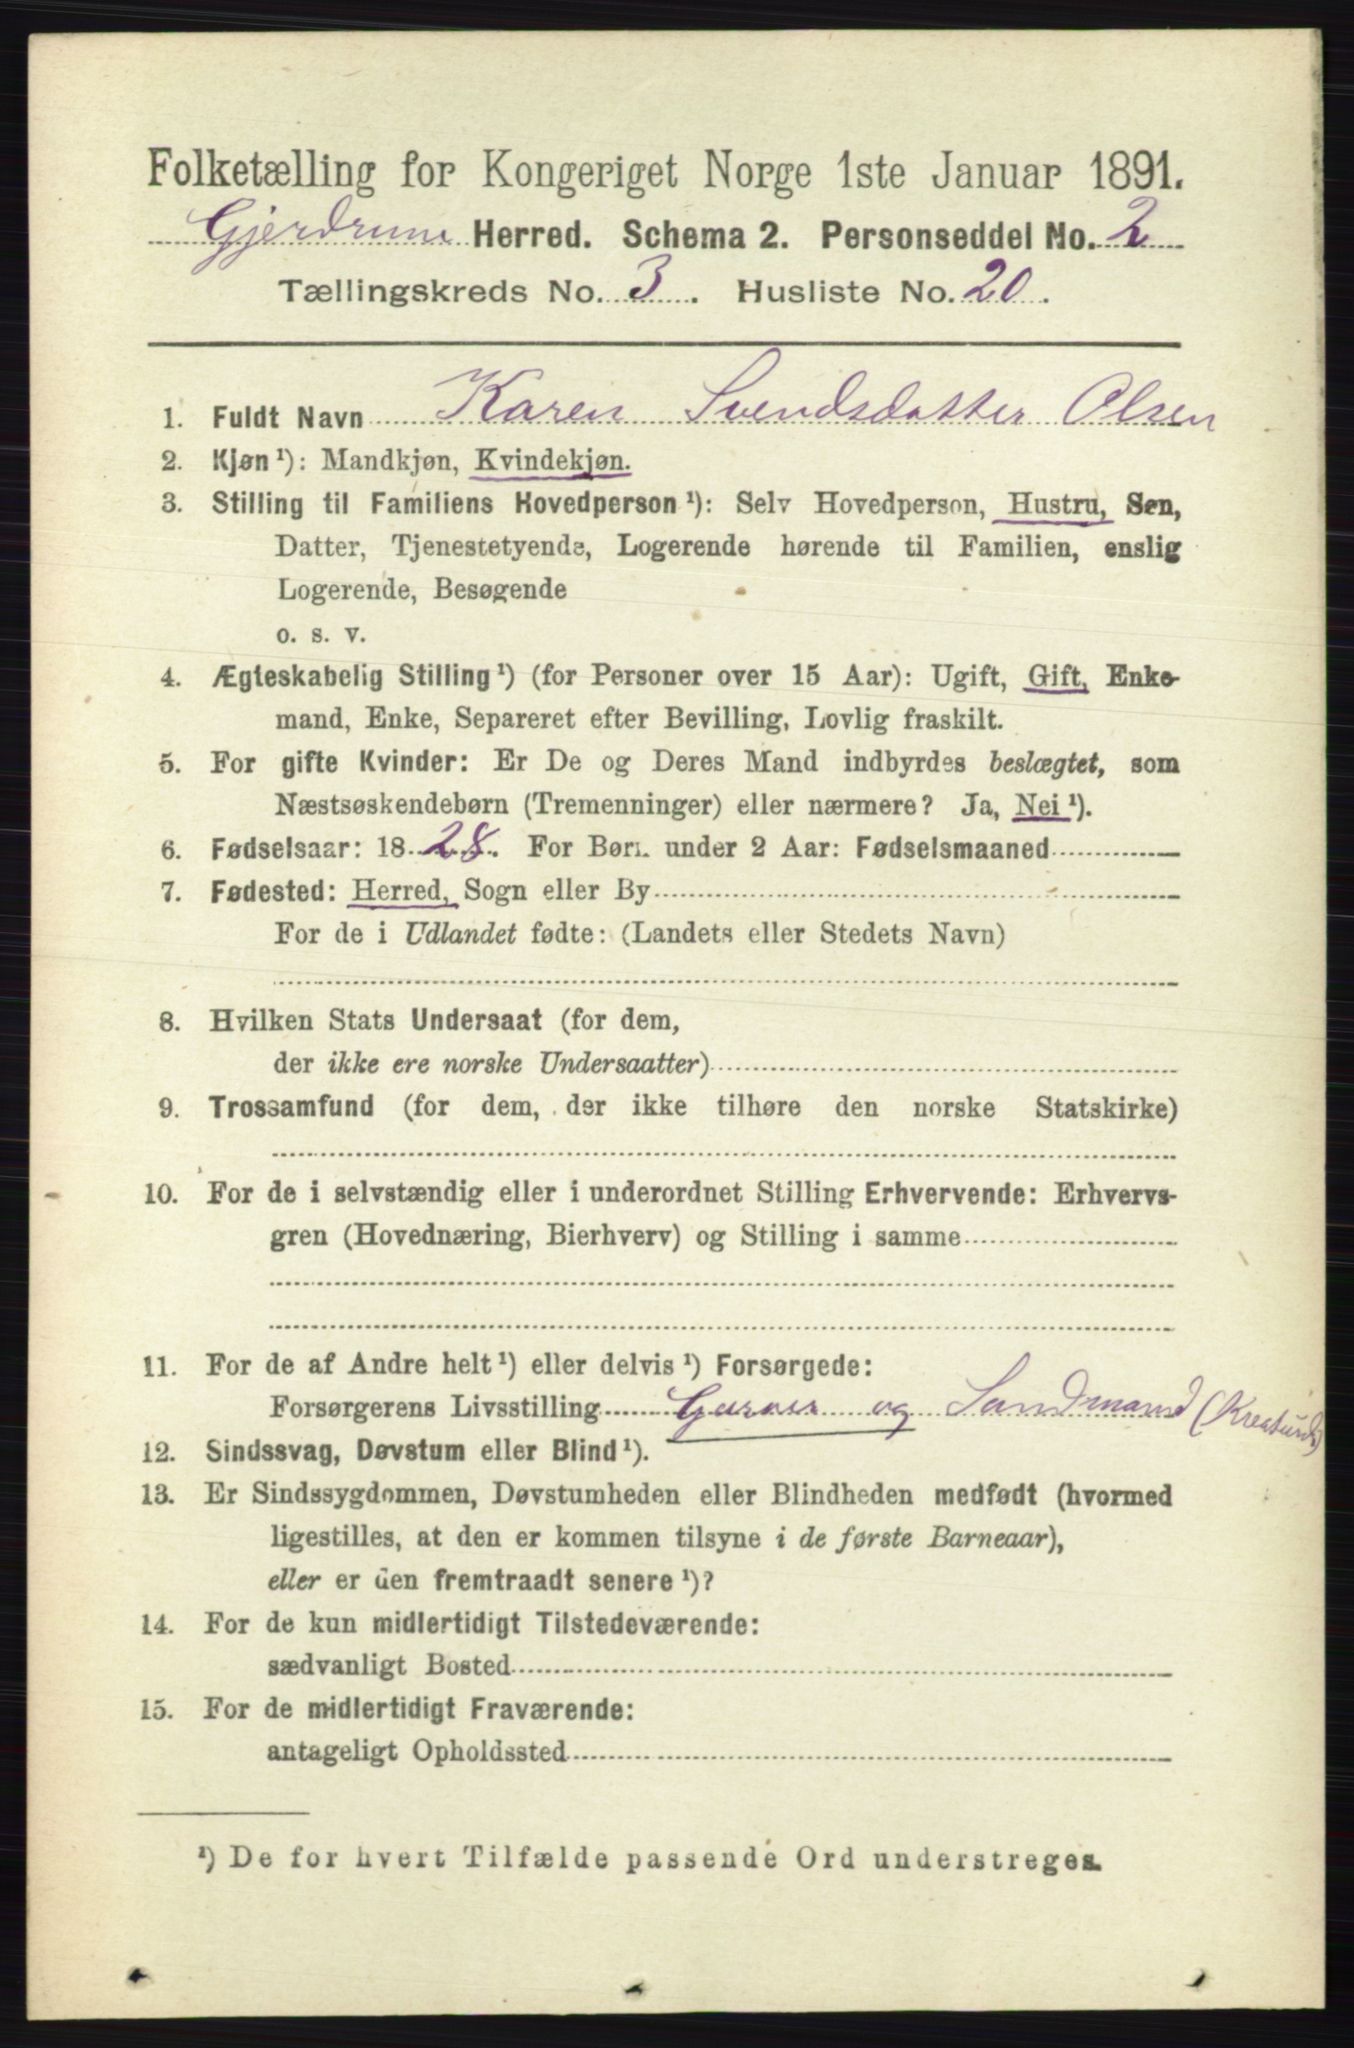 Folketælling for Kongeriget Norge 1ste Januar 1891.
Gjerdrum Herred. Schema 2. Personseddel No. 2
Tællingskreds No. 3. Husliste No. 20.
1. Fuldt Navn Karen Svendsdatter Olsen
2. Kjøn ¹): Mandkjøn, Kvindekjøn.
3. Stilling til Familiens Hovedperson ¹): Selv Hovedperson, Hustru, Søn,
Datter, Tjenestetyende, Logerende hørende til Familien, enslig
Logerende, Besøgende
o. s. v.
4. Ægteskabelig Stilling ¹) (for Personer over 15 Aar): Ugift, Gift, Enke-
mand, Enke, Separeret efter Bevilling, Lovlig fraskilt.
5. For gifte Kvinder: Er De og Deres Mand indbyrdes beslægtet, som
Næstsøskendebørn (Tremenninger) eller nærmere? Ja, Nei ¹).
6. Fødselsaar: 1828. For Børn under 2 Aar: Fødselsmaaned
7. Fødested: Herred, Sogn eller By
For de i Udlandet fødte: (Landets eller Stedets Navn)
8. Hvilken Stats Undersaat (for dem,
der ikke ere norske Undersaatter)
9. Trossamfund (for dem, der ikke tilhøre den norske Statskirke)
10. For de i selvstændig eller i underordnet Stilling Erhvervende: Erhvervs-
gren (Hovednæring, Bierhverv) og Stilling i samme
11. For de af Andre helt ¹) eller delvis ¹) Forsørgede:
Forsørgerens Livsstilling og
12. Sindssvag, Døvstum eller Blind ¹).
13. Er Sindssygdommen, Døvstumheden eller Blindheden medfødt (hvormed
ligestilles, at den er kommen tilsyne i de første Barneaar),
eller er den fremtraadt senere ¹)?
14. For de kun midlertidigt Tilstedeværende:
sædvanligt Bosted
15. For de midlertidigt Fraværende:
antageligt Opholdssted
¹) De for hvert Tilfælde passende Ord understreges.